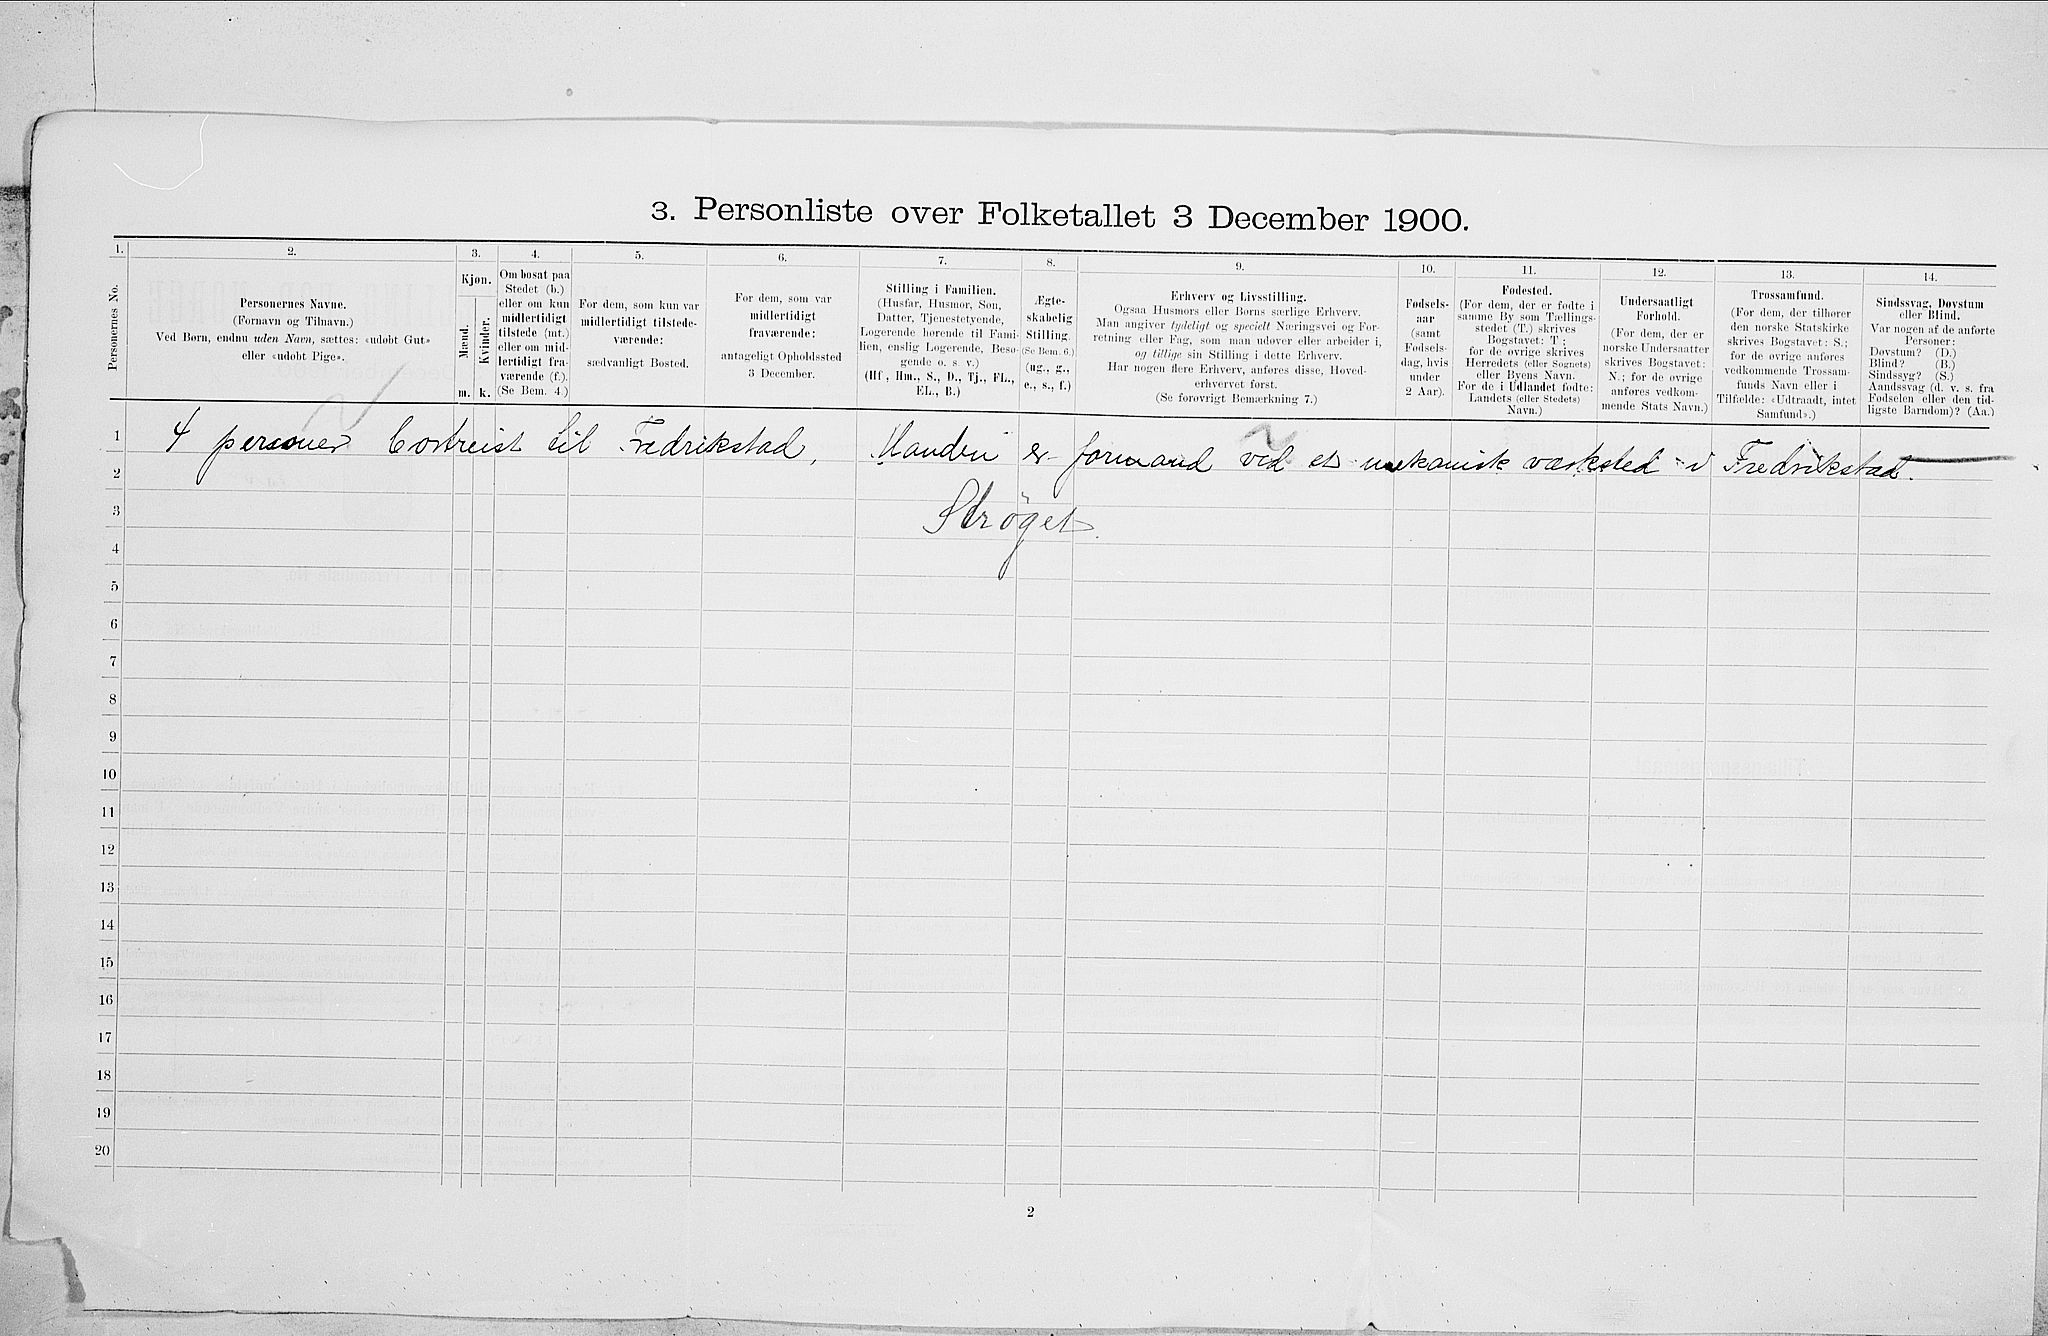 3. Personliste over Folketallet 3 December 1900.
1. 2. 3. 4. 5. 6. 7. 8. 9. 10. 11. 12. 13. 14.
Personernes No.
Personernes Navne.
(Fornavn og Tilnavn.)
Ved Børn, endnu uden Navn, sættes: «udøbt Gut»
eller «udøbt Pige».
Kjøn.
Mænd.
Kvinder.
m. k.
Om bosat paa
Stedet (b.)
eller om kun
midlertidigt
tilstede (mt.)
eller om mid-
lertidigt fra-
værende (f.).
(Se Bem. 4.)
For dem, som kun var
midlertidigt tilstede-
værende:
sædvanligt Bosted.
For dem, som var
midlertidigt
fraværende:
antageligt Opholdssted
3 December.
Stilling i Familien.
(Husfar, Husmor, Søn,
Datter, Tjenestetyende,
Logerende hørende til Fami-
lien, enslig Logerende, Besø-
gende o. s. v.)
(Hf, Hm., S., D., Tj., FL.,
EL., B.)
Ægte-
skabelig
Stilling.
(Se Bem. 6.)
(ug., g.,
e., s., f.)
Erhverv og Livsstilling.
Ogsaa Husmors eller Børns særlige Erhverv.
Man angiver tydeligt og specielt Næringsvei og For-
retning eller Fag, som man udøver eller arbeider i,
og tillige sin Stilling i dette Erhverv.
Har nogen flere Erhverv, anføres disse, Hoved-
erhvervet først.
(Se forøvrigt Bemærkning 7.)
Fødsels-
aar
(samt
Fødsels-
dag, hvis
under
2 Aar).
Fødested.
(For dem, der er fødte i
samme By som Tællings-
stedet (T.) skrives
Bogstavet: T;
for de øvrige skrives
Herredets (eller Sognets)
eller Byens Navn.
For de i Udlandet fødte:
Landets (eller Stedets)
Navn.)
Undersaatligt
Forhold.
(For dem, der er
norske Undersaatter
skrives Bogstavet:
N.; for de øvrige
anføres vedkom-
mende Stats Navn.)
Trossamfund.
(For dem, der tilhører
den norske Statskirke
skrives Bogstavet: S.;
for de øvrige anføres
vedkommende Trossam-
funds Navn eller i
Tilfælde: «Udtraadt, intet
Samfund».)
Sindssvag, Døvstum
eller Blind.
Var nogen af de anførte
Personer:
Døvstum? (D.)
Blind? (B.)
Sindssyg? (S.)
Aandssvag (d. v. s. fra
Fødselen eller den tid-
ligste Barndom)? (Aa.)
1 4 personer bortreist til Fredrikstad, Manden er formand ved et mekanisk værksted i Fredrikstad.
2
3 Strøget.
4
5
6
7
8
9
10
11
12
13
14
15
16
17
18
19
20
2